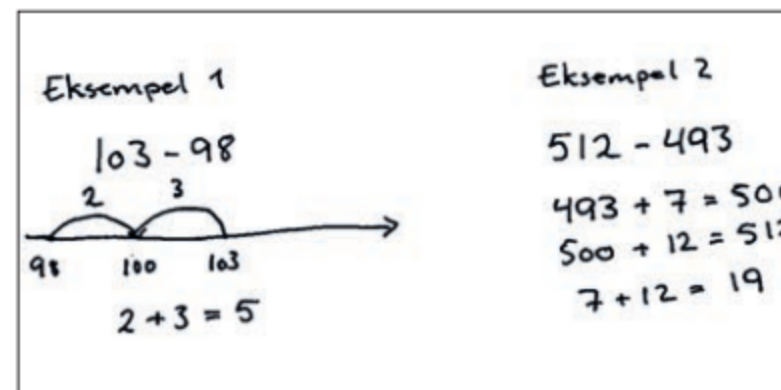 Eksempel 1
103 - 98
2 3
98 100 103
2 + 3 = 5
Eksempel 2
512 - 493
493 + 7 = 50
500 + 12 = 51
7 + 12 = 19